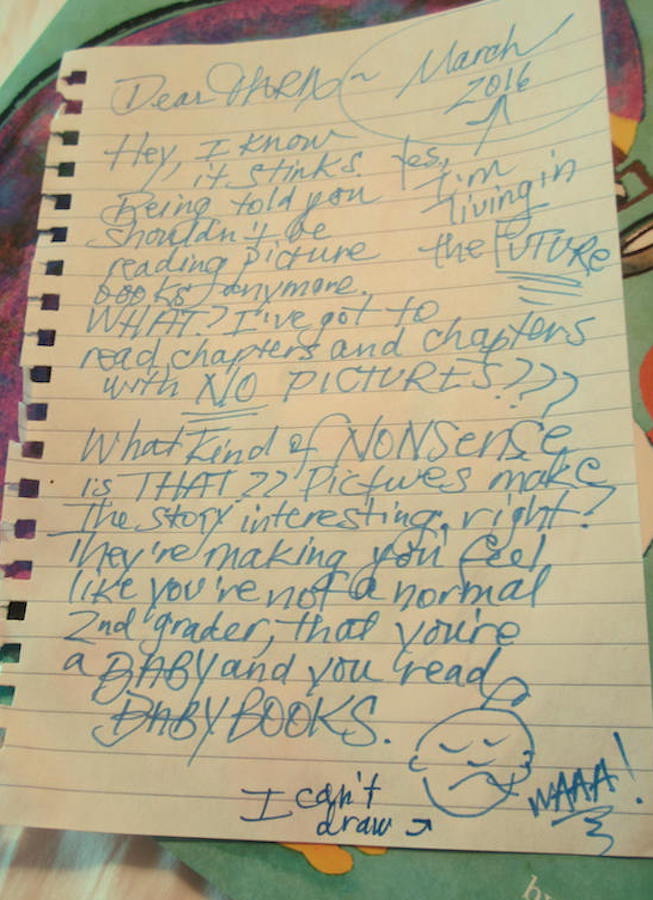 Dear
March
2016
Hey, I know
it stinks.
Yes,
I'm
living in
the FUTURE
Being told you
shouldn't be
reading picture
books anymore.
WHAT? I've got to
read chapters and chapters
with NO PICTURES???
What kind of NONSense
is THAT?? Pictures make
the story interesting, right?
They're making you feel
like you're not a normal
2nd grader, that you're
a BABY and you read
BABY BOOKS.
I can't
draw
WAAA!